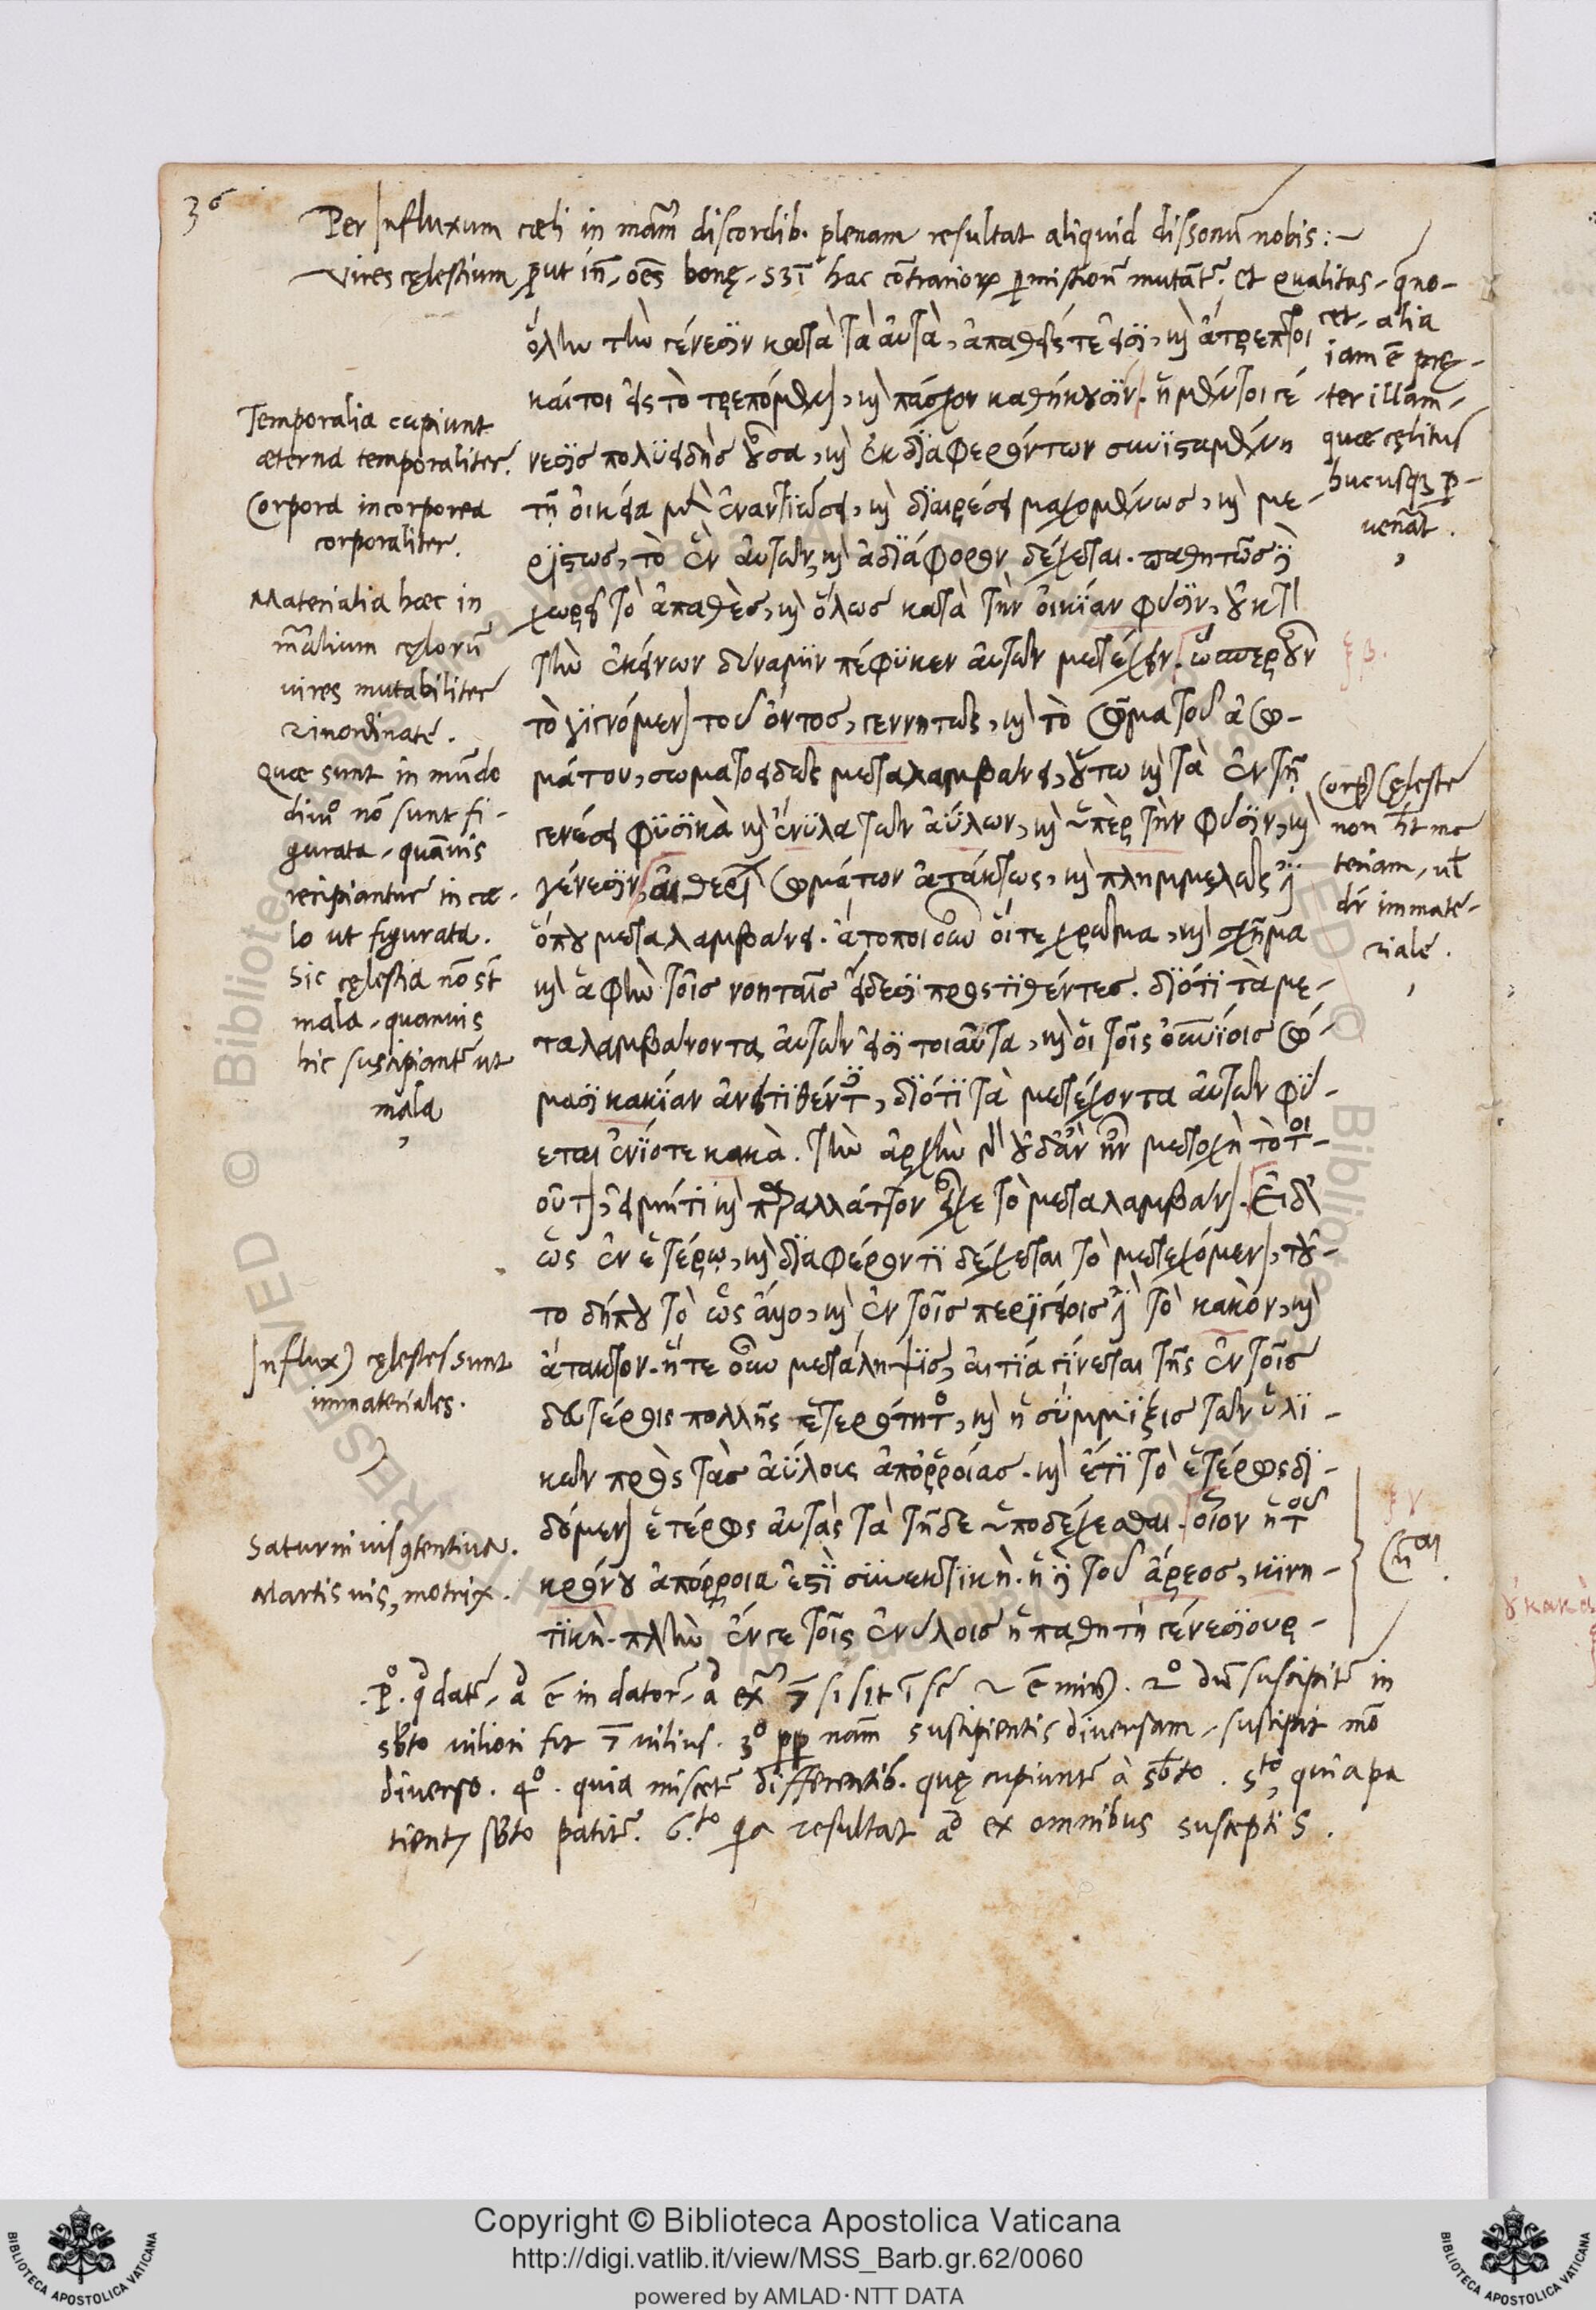 36
Per Influxum cæli in mam̃ discordib. plenam resultat aliquid dissonũ nobis:~
Vires cęlestium, put iñ, oẽs bonę, hac cõtrarior permistioñ mutãt. et qualitas, q̃ no-
cet, alia
iam ẽ pre-
ter illam,
quæ cęlitus
hucusq; p-
uenãt.
ὅλην τὴν γένεσιν κατὰ τὰ ἀυτὰ, ἀπαθεῖς τέ εἰσι, καὶ ἄτρεπτοι
καίτοι εἰς τὸ τρεπόμενον, καὶ πάσχον καθήκουσιν. ἡ μέντοι γέ
νεσις πολυειδὴς οὖσα, καὶ ἐκ διαφερόντων συνισταμένη
τῇ οἰκεία μὲν ἐναντιώσει, καὶ διαιρέσει μαχομένως, καὶ με-
ριστως, τὸ ἓν ἀυτῶν, καὶ ἀδιάφορον δέχεται. παθητῶς δὲ
χωρεῖ τὸ ἀπαθὲς, καὶ ὅλως κατὰ τὴν οἰκίαν φύσιν, οὐ κατὰ
τὴν ἐκείνων δύναμιν πέφυκεν ἀυτῶν μετέχειν. ὥσπερ οὖν
τὸ γιγνόμενον τοῦ ὄντος, γεννητῶς, καὶ τὸ σῶμα τοῦ ἀσω-
μάτου, σωματοειδῶς μεταλαμβάνει, οὕτω καὶ τὰ ἐν τῇ
γενέσει φυσικὰ καὶ ἔνυλα τῶν ἀύλων, καὶ ὑπὲρ τὴν φύσιν, καὶ
γένεσιν, ἀιθερίων σωμάτων ἀτάκτως, καὶ πλημμελῶς
ὅπου μεταλαμβάνει. ἄτοποι οὖν οἵτε χρῶμα, καὶ σχῆμα
καὶ ἀφὴν τοῖς νοηταῖς εἴδεσι προστιθέντες. διότι τὰ με-
ταλαμβάνοντα ἀυτῶν εἰσι τοιαῦτα, καὶ οἱ τοῖς οὐρανίοις σώ-
μασι κακίαν ἀνατιθέντες, διότι τὰ μετέχοντα ἀυτῶν φύ-
εται ἐνίοτε κακὰ. τὴν ἀρχὴν γὰρ οὐδ' ἂν ἦν μετοχὴ τὸ τοι-
οῦτον, εἰ μή τι καὶ παραλλάττον εἶχε τὸ μεταλαμβάνον. Εἰ δὲ
ὡς ἐν ἑτέρῳ, καὶ διαφέροντι δέχεται τὸ μετεχόμενον, τοῦ-
το δήπου τὸ ὡς ἄλλο, καὶ ἐν τοῖς περιγείοις τὸ κακὸν, καὶ
ἄτακτον. ἥτε οὖν μετάληψις, ἀιτία γίνεται τῆς ἐν τοῖς
δευτέροις πολλῆς ἑτερότητος, καὶ ἡ σύμμιξις τῶν ὑλι-
κῶν πρὸς τὰς ἀύλους ἀποῤῥοίας. καὶ ἔτι τὸ ἑτέρως δι-
δόμενον ἑτέρως ἀυτὰς τὰ τῇδε ὑποδέχεσθαι. οἷον ἡ τοῦ
κρόνου ἀπόρροια ἐστὶ συνεκτικὴ. ἡ δὲ τοῦ ἄρεος, κινη-
τικὴ. πλὴν ἔν γε τοῖς ἐνύλοις ἡ παθητὴ γένεσιουρ-
Temporalia capiunt
æterna temporaliter.
Corpora incorporea
corporaliter.
Materialia hæc in
mãlium cęlorũ
uires mutabiliter
inordinatè.
Quæ sunt in mũdo
diuo nõ sunt fi-
gurata, quãuis
recipiantur in cæ-
lo ut figurata.
Sic cęlestia nõ st̃
mala, quamuis
hic suscipiantr ut
mala
Influx9 cęlestes sunt
immateriales.
Saturni uis 9tentiua.
Martis uis, motrix.
Corp9 cęleste
non hẽt ma
teriam, ul̃
dr̃ immate-
riale.
suscipitr in
sbto uiliori fit uilius. 3º pp nam̃ suscipientis diuersam, suscipit mõ
diuerso. 4º. quia miscetr differentib. quę cupiuntr à sbto. 5to, quia pa
tient sbto patitr. 6.to qa resultat ex omnibus susceptis.
Copyright © Biblioteca Apostolica Vaticana
http://digi.vatlib.it/view/MSS_Barb.gr.62/0060
powered by AMLAD · NTT DATA
BIBLIOTECA APOSTOLICA VATICANA
BIBLIOTECA APOSTOLICA VATICANA